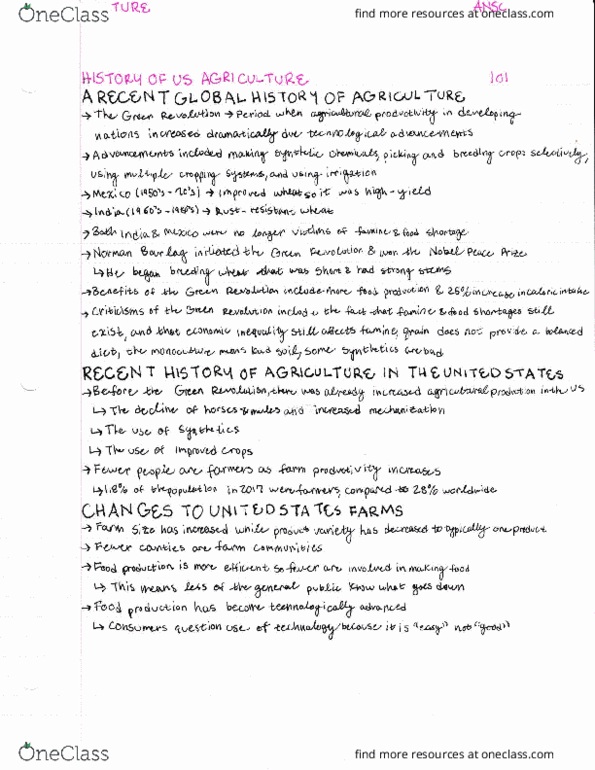 OneClass
TURE
ANSC
find more resources at oneclass.com
HISTORY OF US AGRICULTURE 101
A RECENT GLOBAL HISTORY OF AGRICULTURE
→ The Green Revolution → Period when agricultural productivity in developing
nations increased dramatically due technological advancements
→ Advancements included making synthetic chemicals, picking and breeding crops selectively,
using multiple cropping systems, and using irrigation
→ Mexico (1950's - 70's) → Improved wheat so it was high-yield
→ India (1960's - 1980's) → Rust-resistant wheat
→ Both India & Mexico were no longer victims of famine & food shortage
→ Norman Borlag initiated the Green Revolution & won the Nobel Peace Prize
↳ He began breeding wheat that was short & had strong stems
→ Benefits of the Green Revolution include more food production & 25% increase in caloric intake
→ Criticisms of the Green Revolution include the fact that famine & food shortages still
exist, and that economic inequality still affects famine, grain does not provide a balanced
diet, the monoculture means bad soil, some synthetics are bad
RECENT HISTORY OF AGRICULTURE IN THE UNITED STATES
→ Before the Green Revolution, there was already increased agricultural production in the US
↳ The decline of horses & mules and increased mechanization
↳ The use of synthetics
↳ The use of improved crops
→ Fewer people are farmers as farm productivity increases
↳ 1.8% of the population in 2017 were farmers, compared to 28% worldwide
CHANGES TO UNITED STATES FARMS
→ Farm size has increased while product variety has decreased to typically one product
→ Fewer counties are farm communities
→ Food production is more efficient so fewer are involved in making food
↳ This means less of the general public know what goes down
→ Food production has become technologically advanced
↳ Consumers question use of technology because it is "easy" not "good"
OneClass
find more resources at oneclass.com